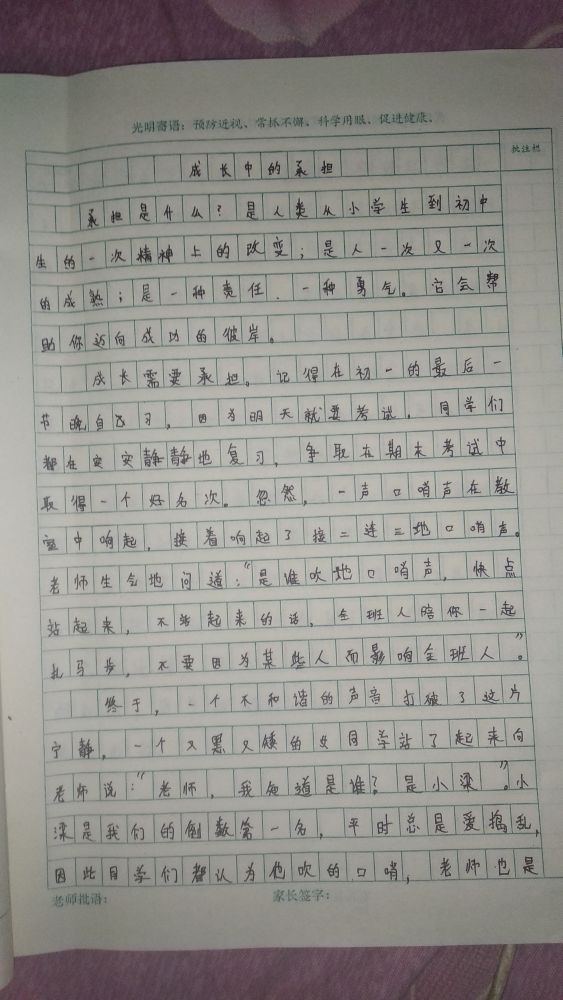 光明寄语：预防近视、常抓不懈、科学用眼、促进健康。
批注栏
成长中的承担
承担是什么？是人类从小学生到初中
生的一次精神上的改变；是人一次又一次
的成熟；是一种责任、一种勇气。它会帮
助你迈向成功的彼岸。
成长需要承担。记得在初一的最后一
节晚自习，因为明天就要考试，同学们
都在安安静静地复习，争取在期末考试中
取得一个好名次。忽然，一声口哨声在教
室中响起，接着响起了接二连三地口哨声。
老师生气地问道：“是谁吹地口哨声，快点
站起来，不站起来的话，全班人陪你一起
扎马步，不要因为某些人而影响全班人”。
终于，一个不和谐的声音打破了这片
宁静，一个又黑又矮的女同学站了起来向
老师说：“老师，我知道是谁？是小梁”。小
梁是我们的倒数第一名，平时总是爱捣乱，
因此同学们都认为他吹的口哨，老师也是
老师批语：
家长签字：